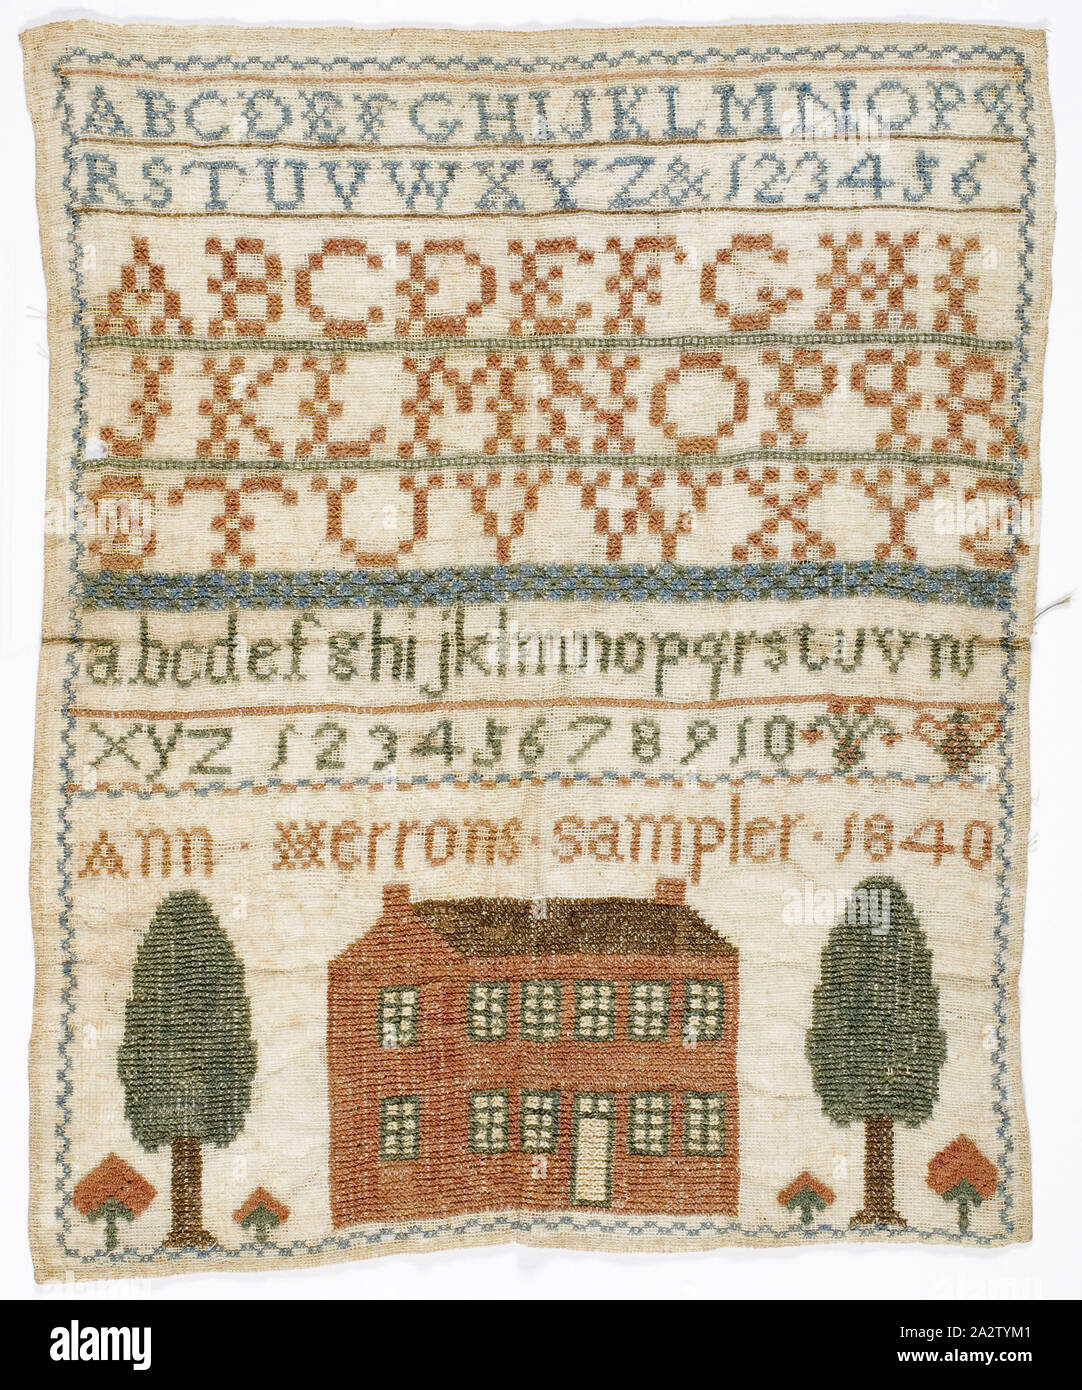 ABCDEFGHIJKLMNOPq
RSTUVWXYZ& 123456
ABCDEFGHI
JKLMNOPqR
STUVWXYS
abcdefghijklmnopqrstuvw
xyz 12345678910
Ann · Werrons · sampler · 1840
alamy
Image ID: 2A2TYM1
www.alamy.com